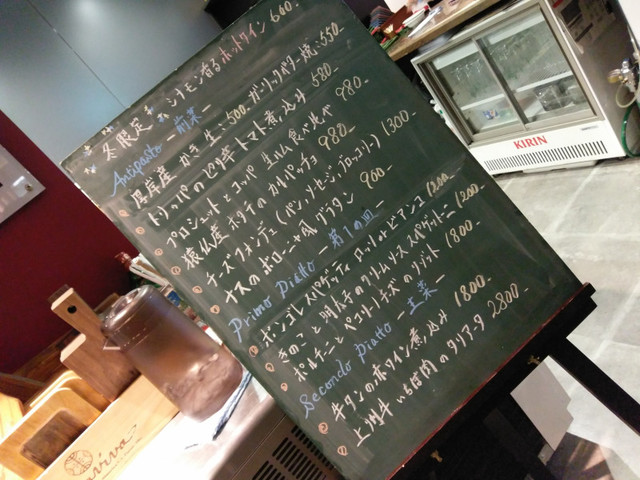 冬限定 シナモン香るホットワイン 600-
Antipasto 前菜ー
厚岸産 カキ 生:500- ガーリックバター焼:550-
トリッパのピリ辛トマト煮込み 580-
プロシュットとコッパ 生ハム食べ比べ 980-
猿仏産 ホタテのカルパッチョ 980-
チーズフォンデュ(パン,ソーセージ,ブロッコリー) 1300-
ナスのボローニャ風グラタン 900-
Primo Piatto 第1の皿ー
ボンゴレスパゲッティ ロッソorビアンコ 1200-
きのこと明太子のクリームソーススパゲットーニ 1200-
ポルチーニとペコリーノチーズのリゾット 1800-
Secondo Piatto ー主菜ー
牛タンの赤ワイン煮込み 1800-
上州牛 いちぼ肉のタリアータ 2800-
KIRIN
viva